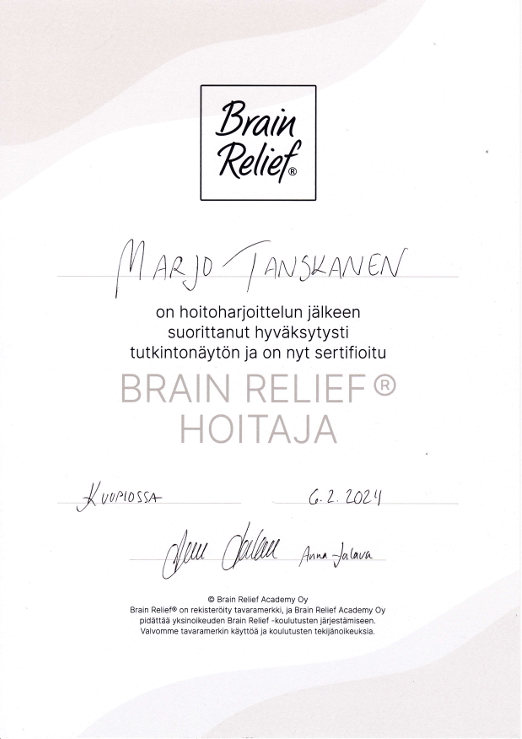 Brain
Relief®
MARJO TANSKANEN
on hoitoharjoittelun jälkeen
suorittanut hyväksytysti
tutkintonäytön ja on nyt sertifioitu
BRAIN RELIEF®
HOITAJA
KUOPIOSSA 6.2.2024
Anna Jalava
© Brain Relief Academy Oy
Brain Relief® on rekisteröity tavaramerkki, ja Brain Relief Academy Oy
pidättää yksinoikeuden Brain Relief -koulutusten järjestämiseen.
Valvomme tavaramerkin käyttöä ja koulutusten tekijänoikeuksia.